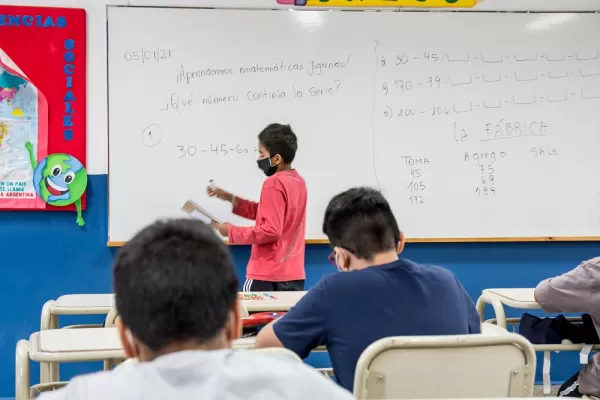 ENCIAS
SOCIALES
EN UN PAIS
SE LLAMA
ARGENTINA
05/01/21
¡Aprendemos matemáticas Jugando!
¿Qué número Continúa la Serie?
1
30-45-60
30-45-
170-79-
100-106
LA FÁBRICA
TOMA Agrego SALE
45 75
105 69
172 189